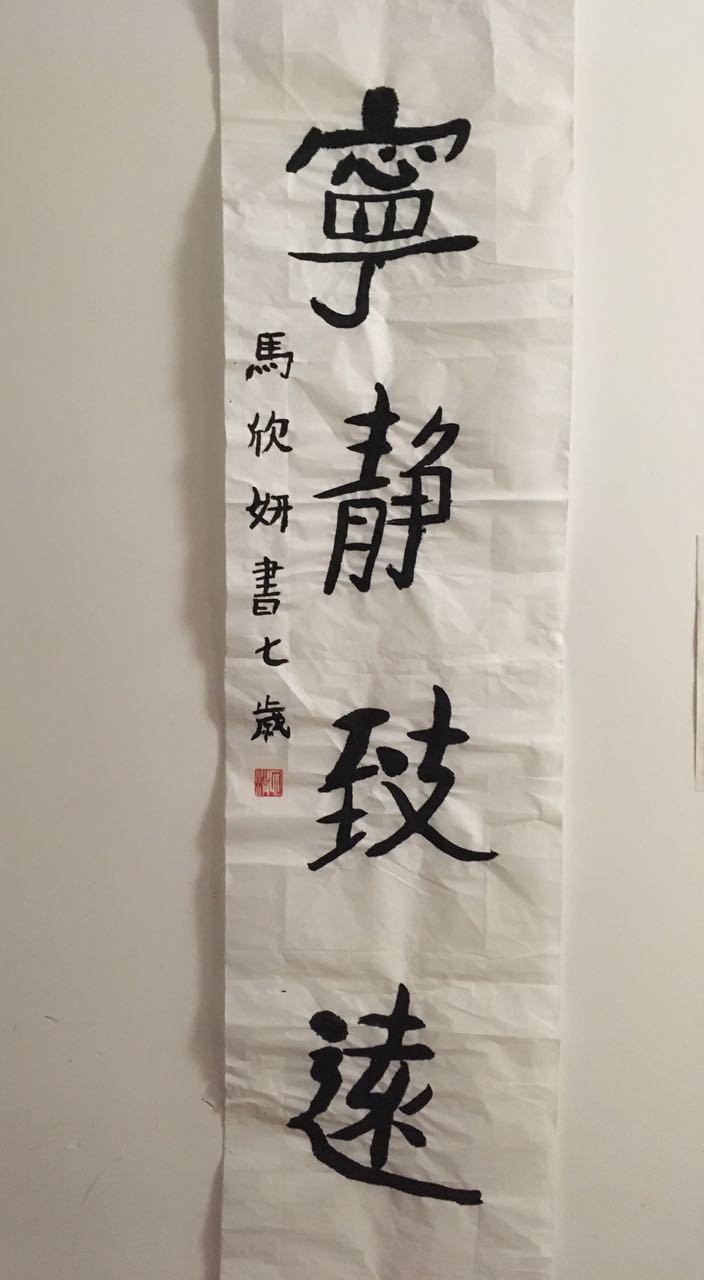 寧靜致遠
馬欣妍書七歲